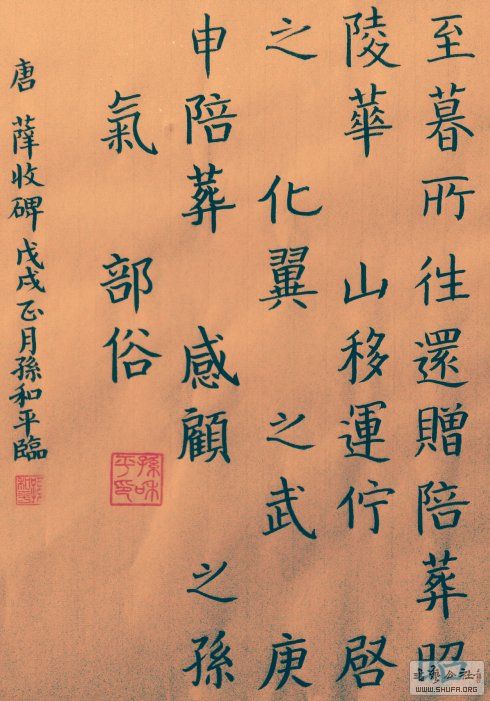 至暮所往還贈陪葬昭
陵華 山移運佇 啓
之 化翼 之武 庚
申陪葬 感顧 之孫
氣 部俗
唐 薛收碑 戊戌正月孫和平臨
孫和平印
WWW.SHUFA.ORG